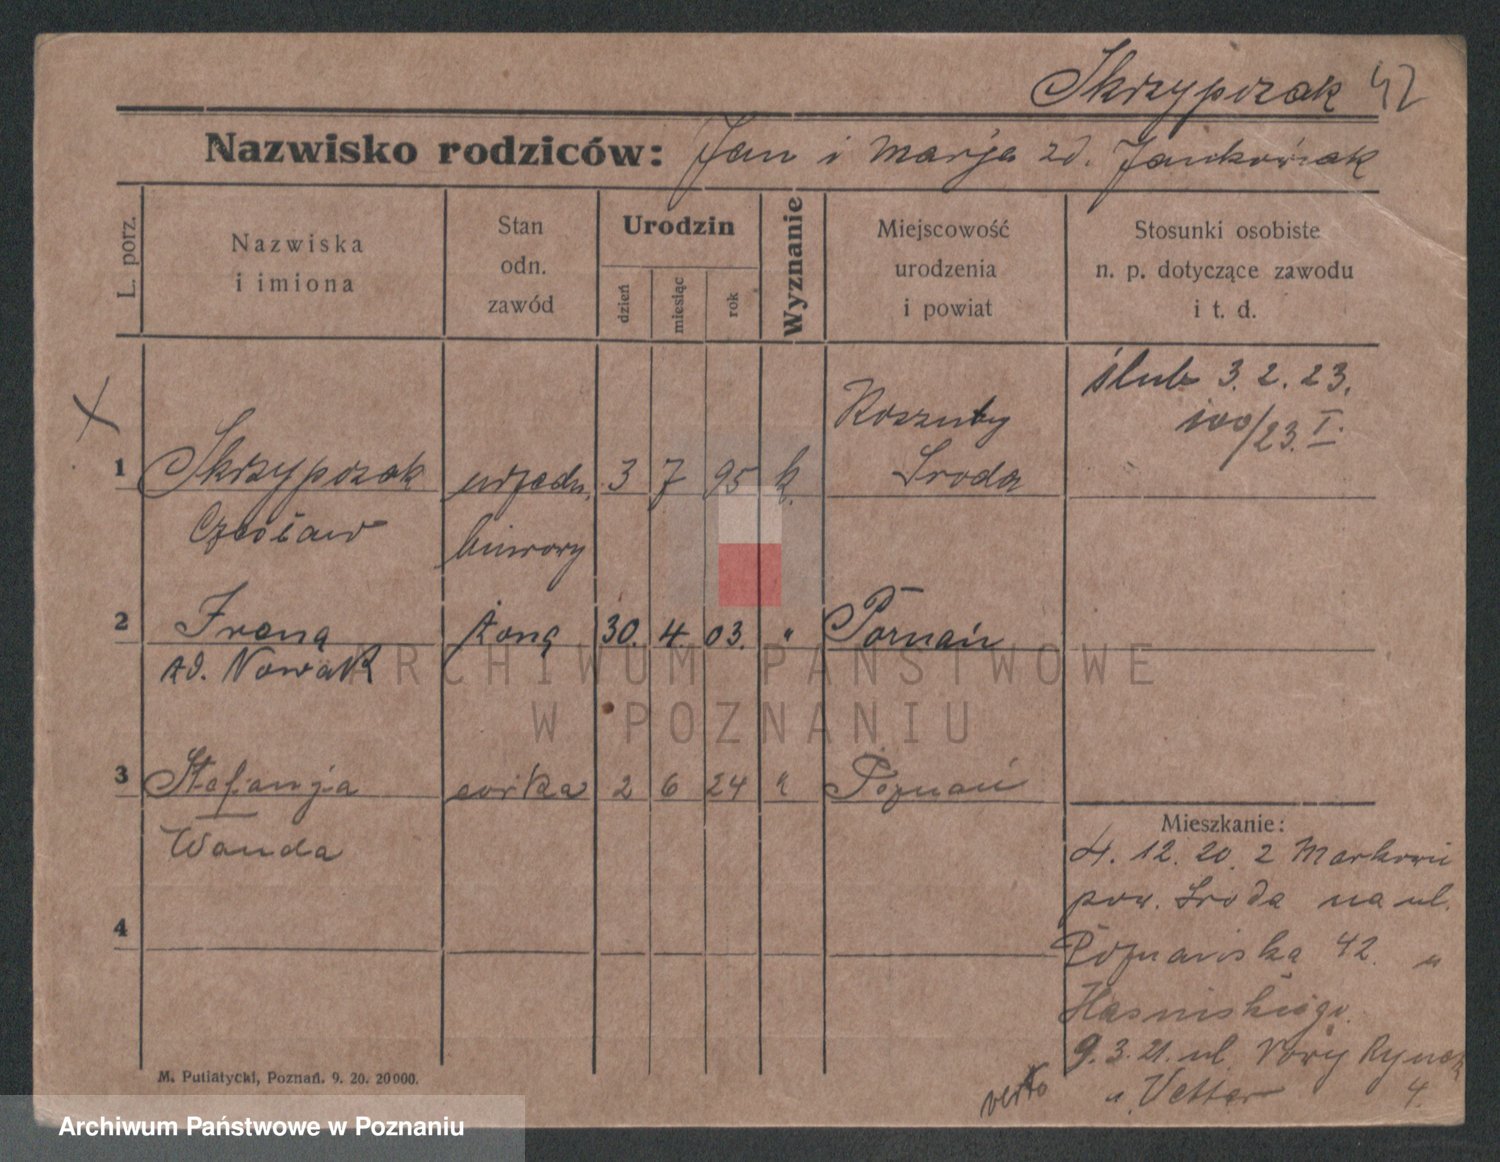 Skrzypczak 42
Nazwisko rodziców: Jan i Marja zd. Jankowiak
L. porz.
Nazwiska
i imiona
Stan
odn.
zawód
Urodzin
dzień
miesiąc
rok
Wyznanie
Miejscowość
urodzenia
i powiat
Stosunki osobiste
n. p. dotyczące zawodu
i t. d.
ślub 3. 2. 23.
100/23. I.
1 Skrzypczak urzędn. 3 7 95 k. Środa
Czesław biurowy
2 Irena żona 30. 4. 03. " Poznań
zd. Nowak
3 Stefanja córka 2 6 24 " Poznań
Wanda
4
Mieszkanie:
4. 12. 20 z
pow. Środa na ul.
Poznańska 42. u
9. 3. 21. ul. Nowy Rynek
u. Vetter 4.
verto
M. Putiatycki, Poznań. 9. 20. 20000.
ARCHIWUM PAŃSTWOWE
W POZNANIU
Archiwum Państwowe w Poznaniu